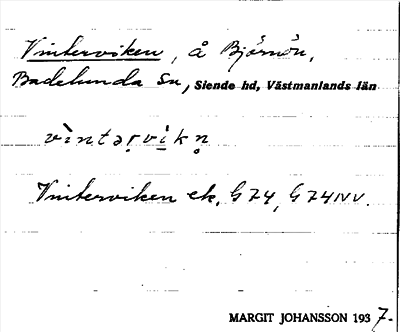 Vinterviken, å Björnön,
Badelunda sn, Siende hd, Västmanlands län
vìntəṛvi̠kn̥
Vinterviken ek. G 74, G 74 NV.
MARGIT JOHANSSON 1937-